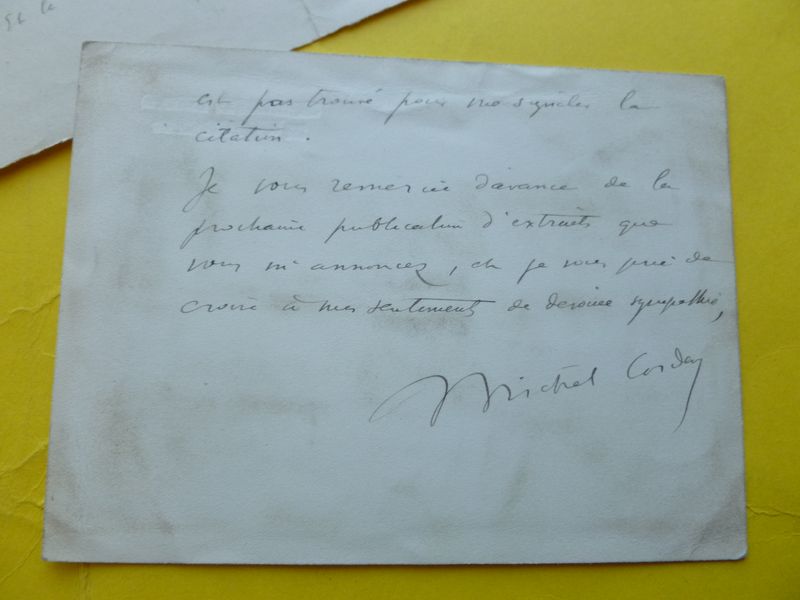 est pas trouvé pour me signaler la
citation.
Je vous remercie d'avance de la
prochaine publication d'extraits que
vous m'annoncez, et je vous prie de
croire à mes sentiments de dévouée sympathie,
Michel Corday